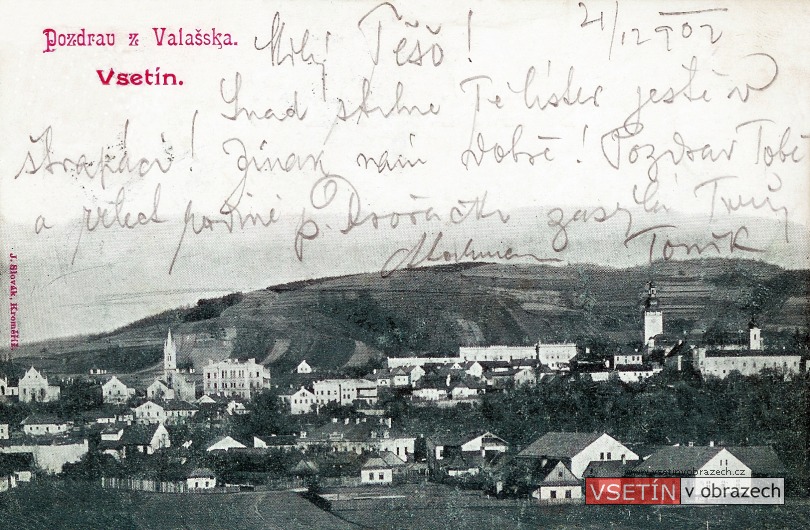 Pozdrav z Valašska.
Vsetín.
21/12 902
Milý Těšo!
Snad stihne Tě lístek ještě v
Jinak nám dobře! Pozdrav Tobě
a p. Dvořáčk zasýlá Tvůj
Toník
J. Slovák, Kroměříž.
www.vsetinvobrazech.cz
VSETÍN v obrazech